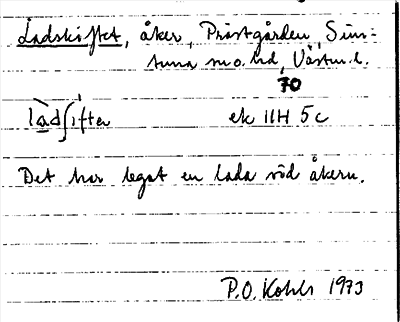 Ladskiftet, åker, Prästgården, Sims-
tuna sn o. hd, Västm. l.
70
ek 11H 5c
Det har legat en lada vid åkern.
P.O. Kohls 1973